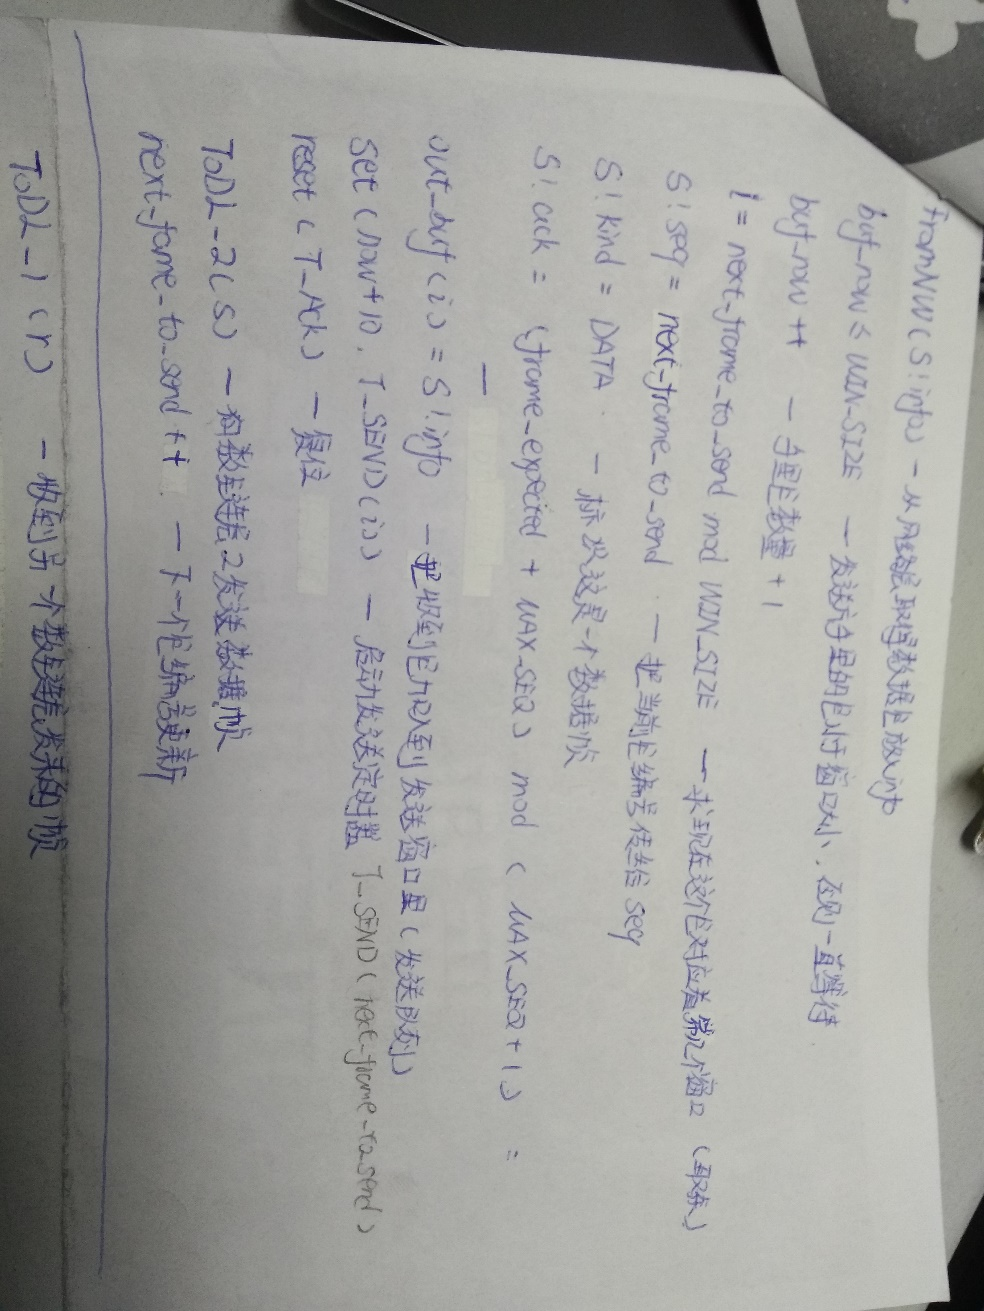 FromNW(S!info) — 从网络层取得数据包放info
buf_now < WIN_SIZE — 发送方缓存里的包小于窗口大小，否则一直等待
buf_now ++ — 包数量 + 1
i = next_frame_to_send mod WIN_SIZE — 求现在这个包对应着第几个窗口 (取余)
S!seq = next_frame_to_send — 把当前包编号传给seq
S!kind = DATA — 标识这是一个数据帧
S!ack = (frame_expected + MAX_SEQ) mod (MAX_SEQ + 1) =
—
out_buf(i) = S!info — 把收到包加入到发送窗口里(发送队列)
set(now+10, T_SEND(i)) — 启动发送定时器 T_SEND(next_frame_to_send)
reset(T_Ack) — 复位
ToDL_2(S) — 向数链层2发送数据帧
next_fame_to_send ++ — 下一个包编号更新
ToDL_1(r) — 收到另一个数链层发来的帧